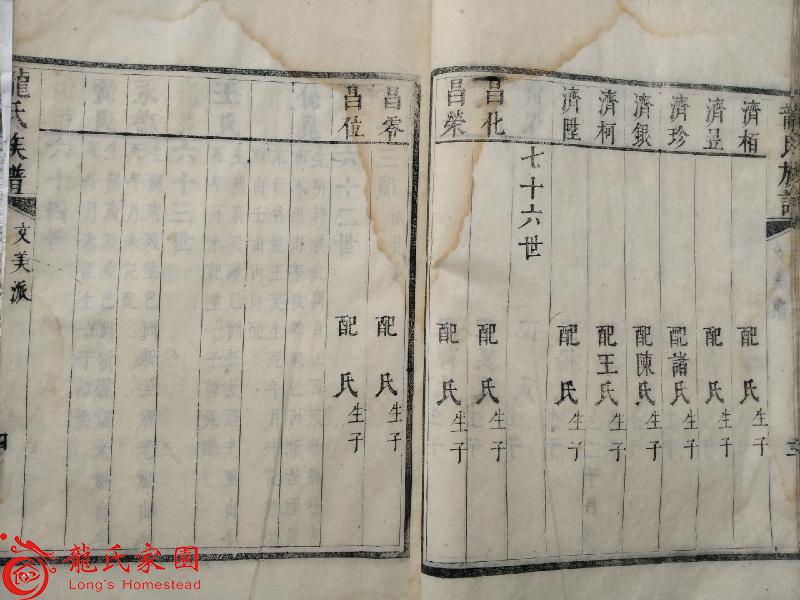 龍氏族譜
三
濟栢 配 氏 生子
濟昱 配 氏 生子
濟珍 配諸氏 生子
濟銀 配陳氏 生子
濟柯 配王氏 生子
濟陞 配 氏 生子
七十六世
昌化 配 氏 生子
昌榮 配 氏 生子
昌零 配 氏 生子
昌位 配 氏 生子
龍氏族譜
文美派
四
龍氏家園
Long's Homestead